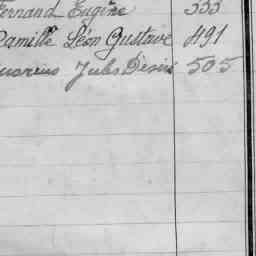 Fernand Eugène 333
Camille Léon Gustave 491
Jules Désiré 505